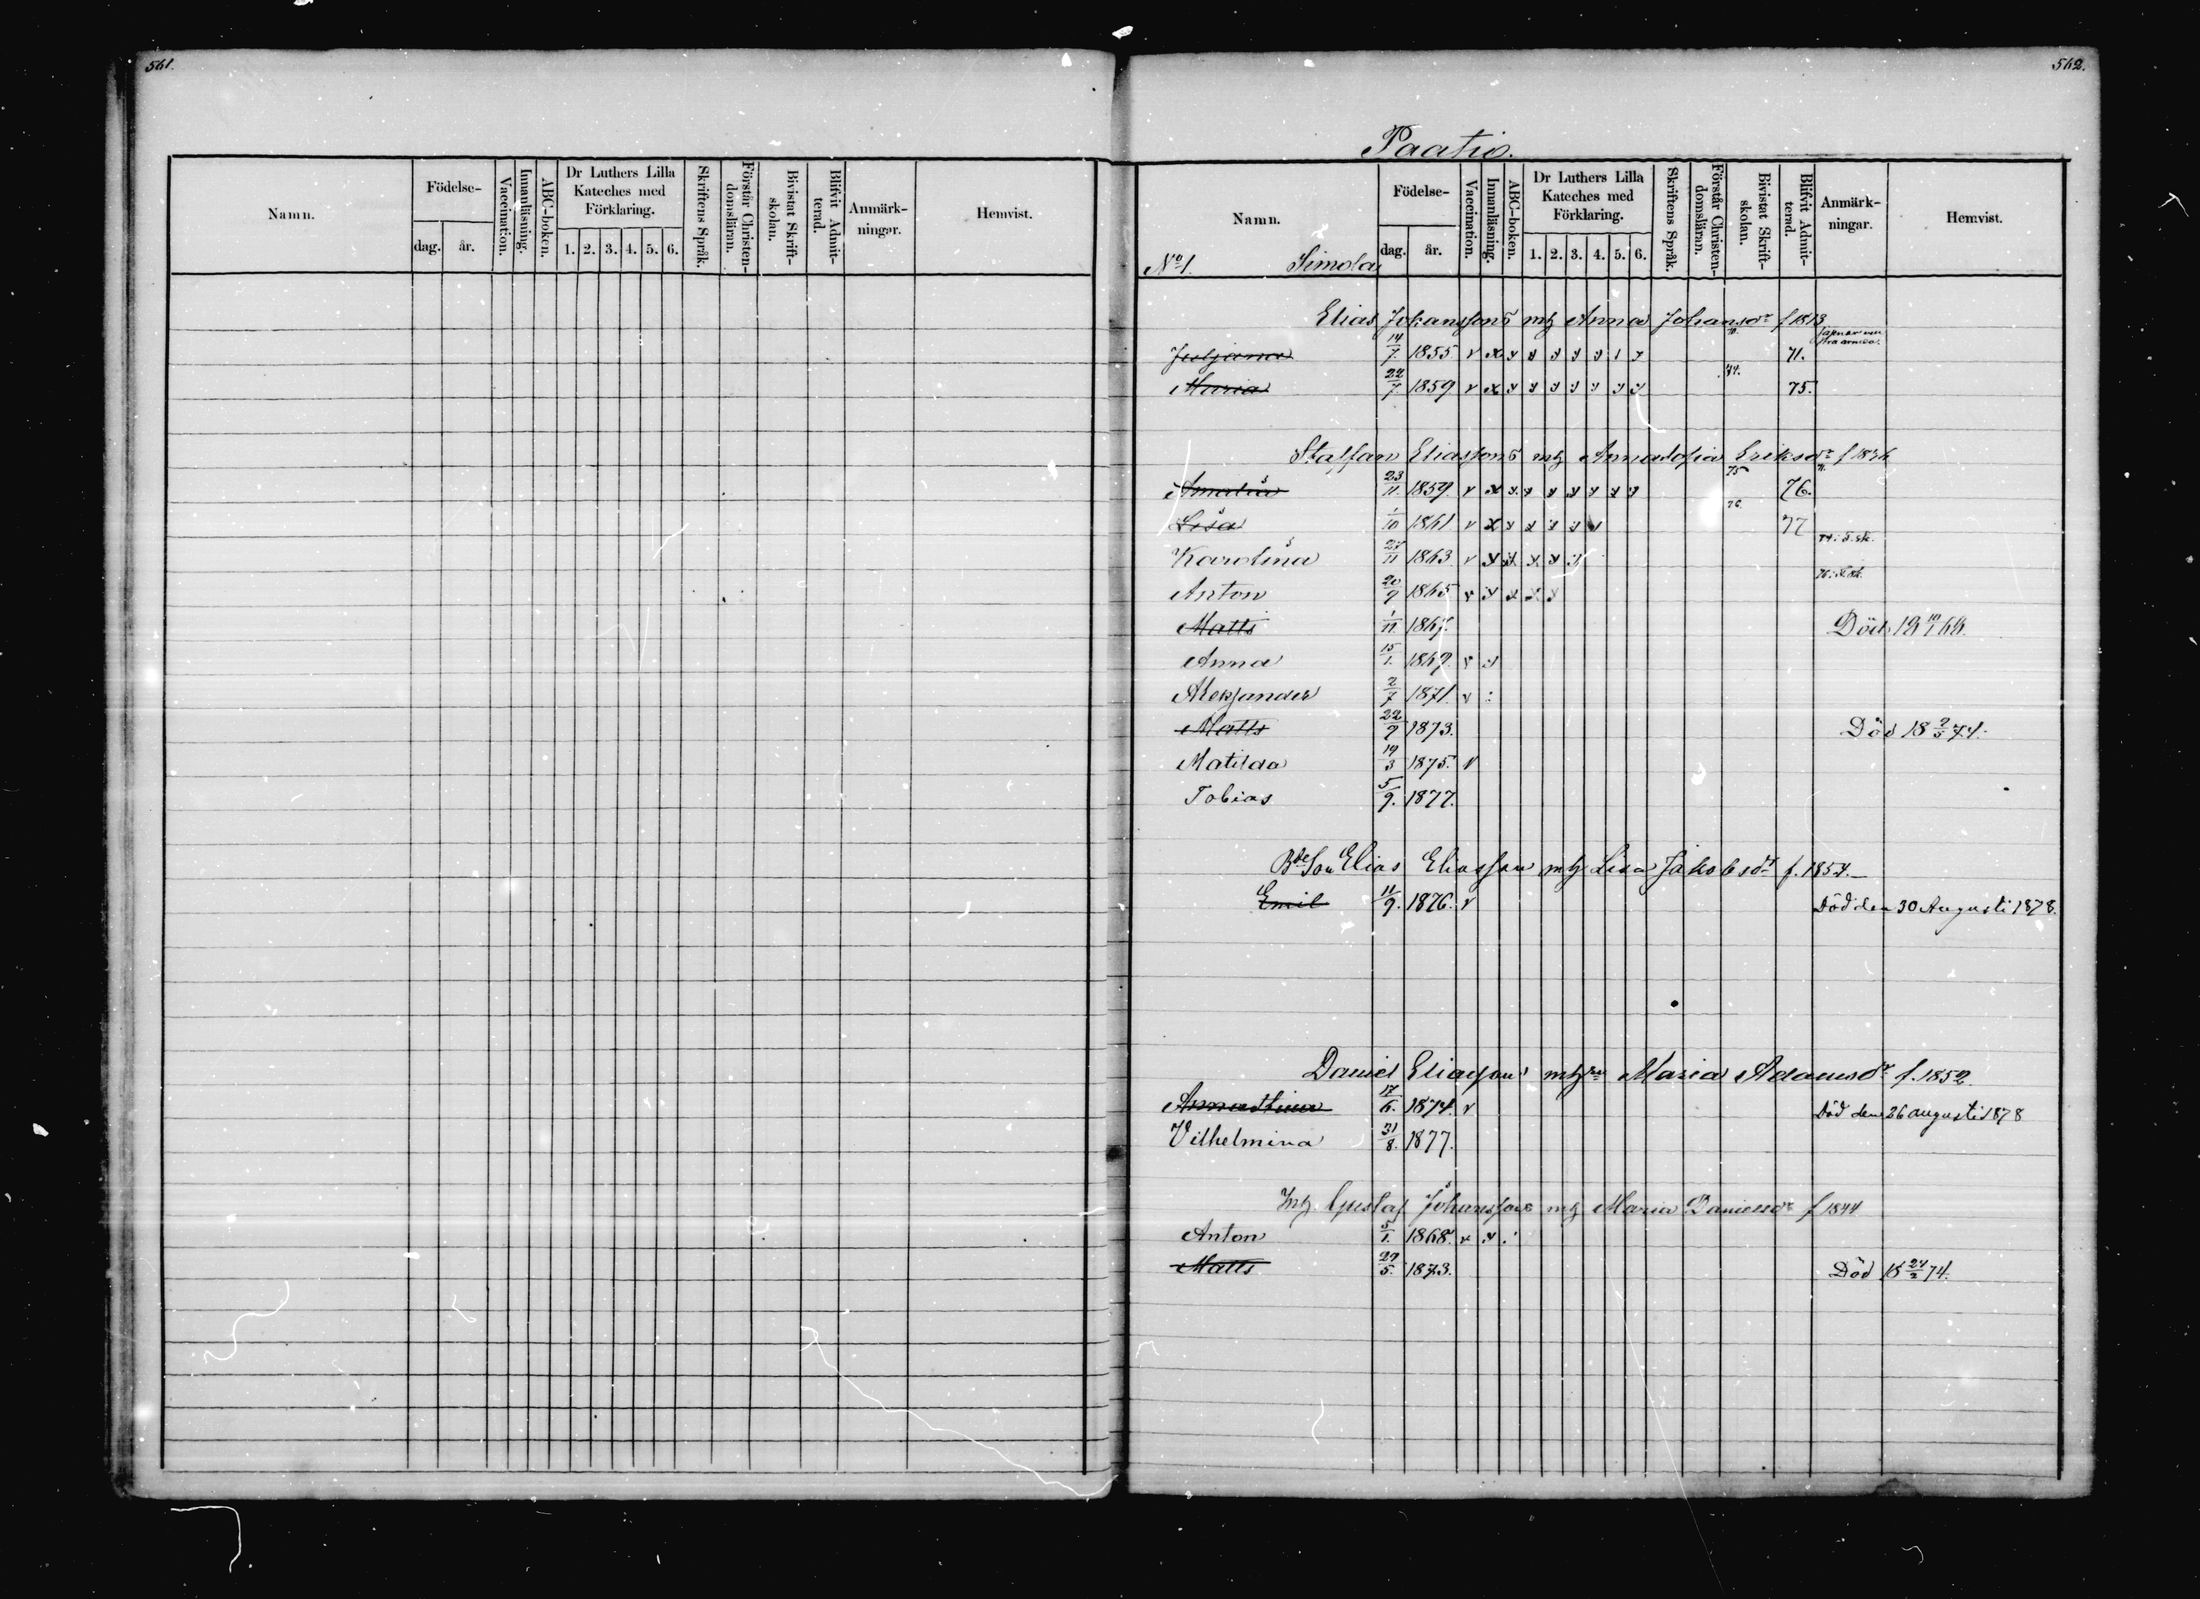 561.
Namn. Födelse- dag. år. Vaccination. Innanläsning. ABC-boken. Dr Luthers Lilla Kateches med Förklaring. 1. 2. 3. 4. 5. 6. Skriftens Språk. Förstår Christen-domsläran. Bivistat Skrift-skolan. Blifvit Admit-terad. Anmärk-ningar. Hemvist.
562.
Paatio.
Namn. Födelse- dag. år. Vaccination. Innanläsning. ABC-boken. Dr Luthers Lilla Kateches med Förklaring. 1. 2. 3. 4. 5. 6. Skriftens Språk. Förstår Christen-domsläran. Bivistat Skrift-skolan. Blifvit Admit-terad. Anmärk-ningar. Hemvist.
No 1. Simola
Elias Johanssons mh Anna Johansdr f 1813
14/7. 1855 71.
Maria 22/7. 1859 74. 75.
Staffan Eliassons mh Annasofia Eriksdr
Amalia 23/11. 1859 75 76.
Lisa 1/10 1861 76. 77
Karolina 27/11 1863
Anton 20/9 1865
Matts 1/11. 1867. Död 18 10/1 68.
Anna 15/1. 1869.
Alexsander 2/7 1871.
Matts 22/9 1873. Död 18 2/5 74.
Matilda 19/3 1875.
Tobias 5/9. 1877.
Elias Eliasson mh Lisa Jakobsdr f. 1854.
Emil 11/9. 1876. Död den 30 Augusti 1878.
Daniel Eliasson mh Maria Adamsdr f. 1852
Annastina 17/6. 1874. Död den 26 augusti 1878
Vilhelmina 31/8. 1877.
Inh. Gustaf Johansson mh Maria Danielsdr f 1844
Anton 5/1. 1868.
Matts 29/5. 1873. Död 18 24/2 74.